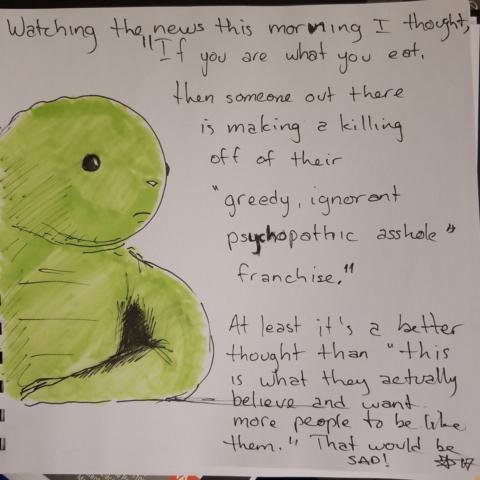 Watching the news this morning I thought,
"If you are what you eat,
then someone out there
is making a killing
off of their
"greedy, ignorant
psychopathic asshole"
franchise."
At least it's a better
thought than "this
is what they actually
believe and want
more people to be like
them." That would be
SAD!